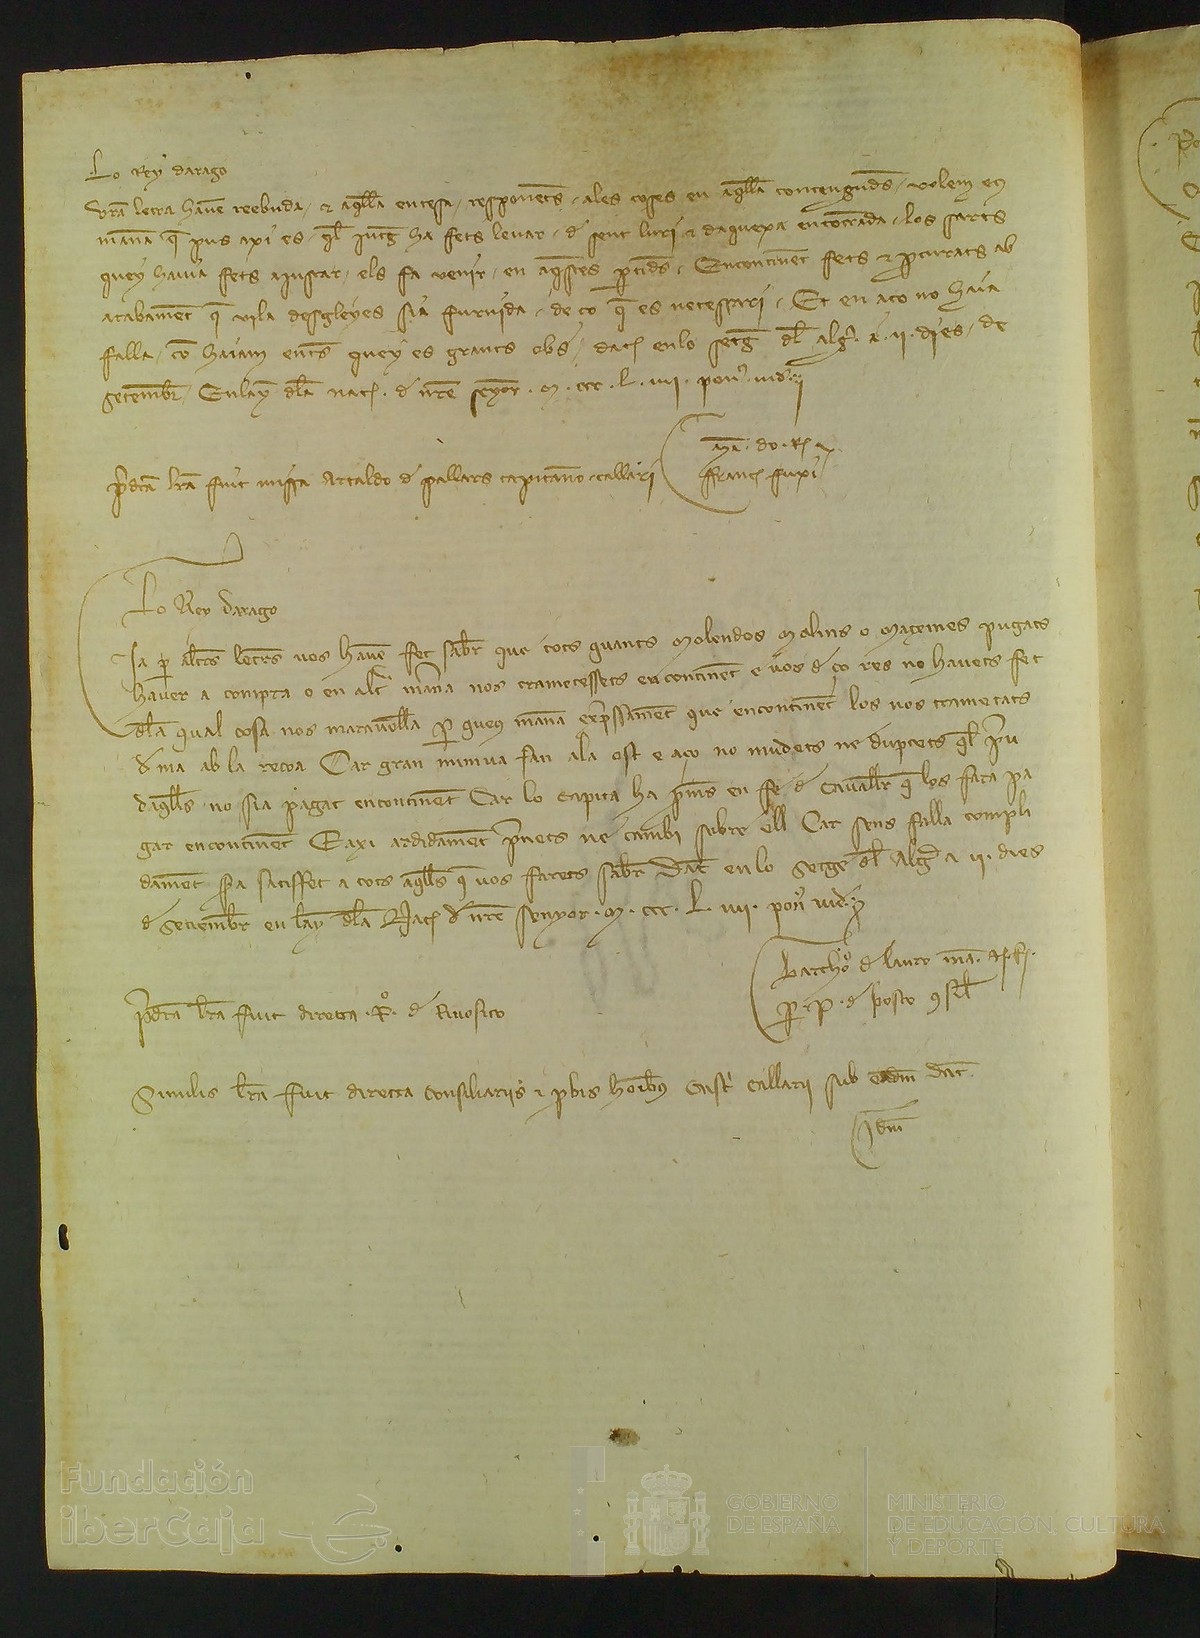 Lo Rey darago
vra letra havē reebuda / e aqlla entesa / responents / a les coses en aqlla contengudes / volem eus
manā q pus axi es / ql jutge ha fets levar / de sent luri e daquexa encotrada / los sarts
quey havia fets aiustar / els fa venir / en aqstes ptides / Encontinēt fets e pcurats ab
acabamēt q vila desgleyes sia furnida / de ço q es necessari / Et en aço no haia
falla / cō haiam entes quey es grants obs / datū en lo setge del alg̃ a .ii. dies / de
Setembr̄ / En lany dla nat̄ . de nr̄e senyor . M . ccc . L . iiii . pon9 . vid
ma . do . R
p̄dc̄a lr̄a fuit missa Artaldo de pallars capitaneo callari
ffranc̄ fuxi
Lo Rey darago
Ja p altres letres vos havē fet saber que tots quants Molendos Molins o Maçemes pugats
haver a compra o en altr̄ man̄a nos trametessets encontinent e vos de ço res no havets fet
dla qual cosa nos maravella p queus manā exp̄ssament que encontinēt los nos trametats
d ma ab la recoa Car gran minva fan a la ost e aço no mudets ne duptets ql p̄u
daqlls no sia pagat encontinēt Car lo Capita ha pm̄s en fe de Cavaller q los fara pa
gar encontinēt E axi ardidamēt p̄nets ne cambi sobre ell Car sens falla compli
damēt sra satisffet a tots aqlls q vos farets saber Dat̄ en lo Setge dl Alg̃ a II. dies
d Setembr̄ en lany dla Nat̄ d nr̄e senyor . M . ccc . L . iiii . pon9 vid
Bartho de lauro ma . R.
p̄dc̄a lr̄a fuit directa . R̊ . de Rivosico
p . P . de bosco 9sil
Similis lr̄a fuit directa Consiliariis e pbis hōibꝯ Castri Callarii sub eadm dat̄.
Idm
Fundación
iberCaja
GOBIERNO
DE ESPAÑA
MINISTERIO
DE EDUCACIÓN, CULTURA
Y DEPORTE